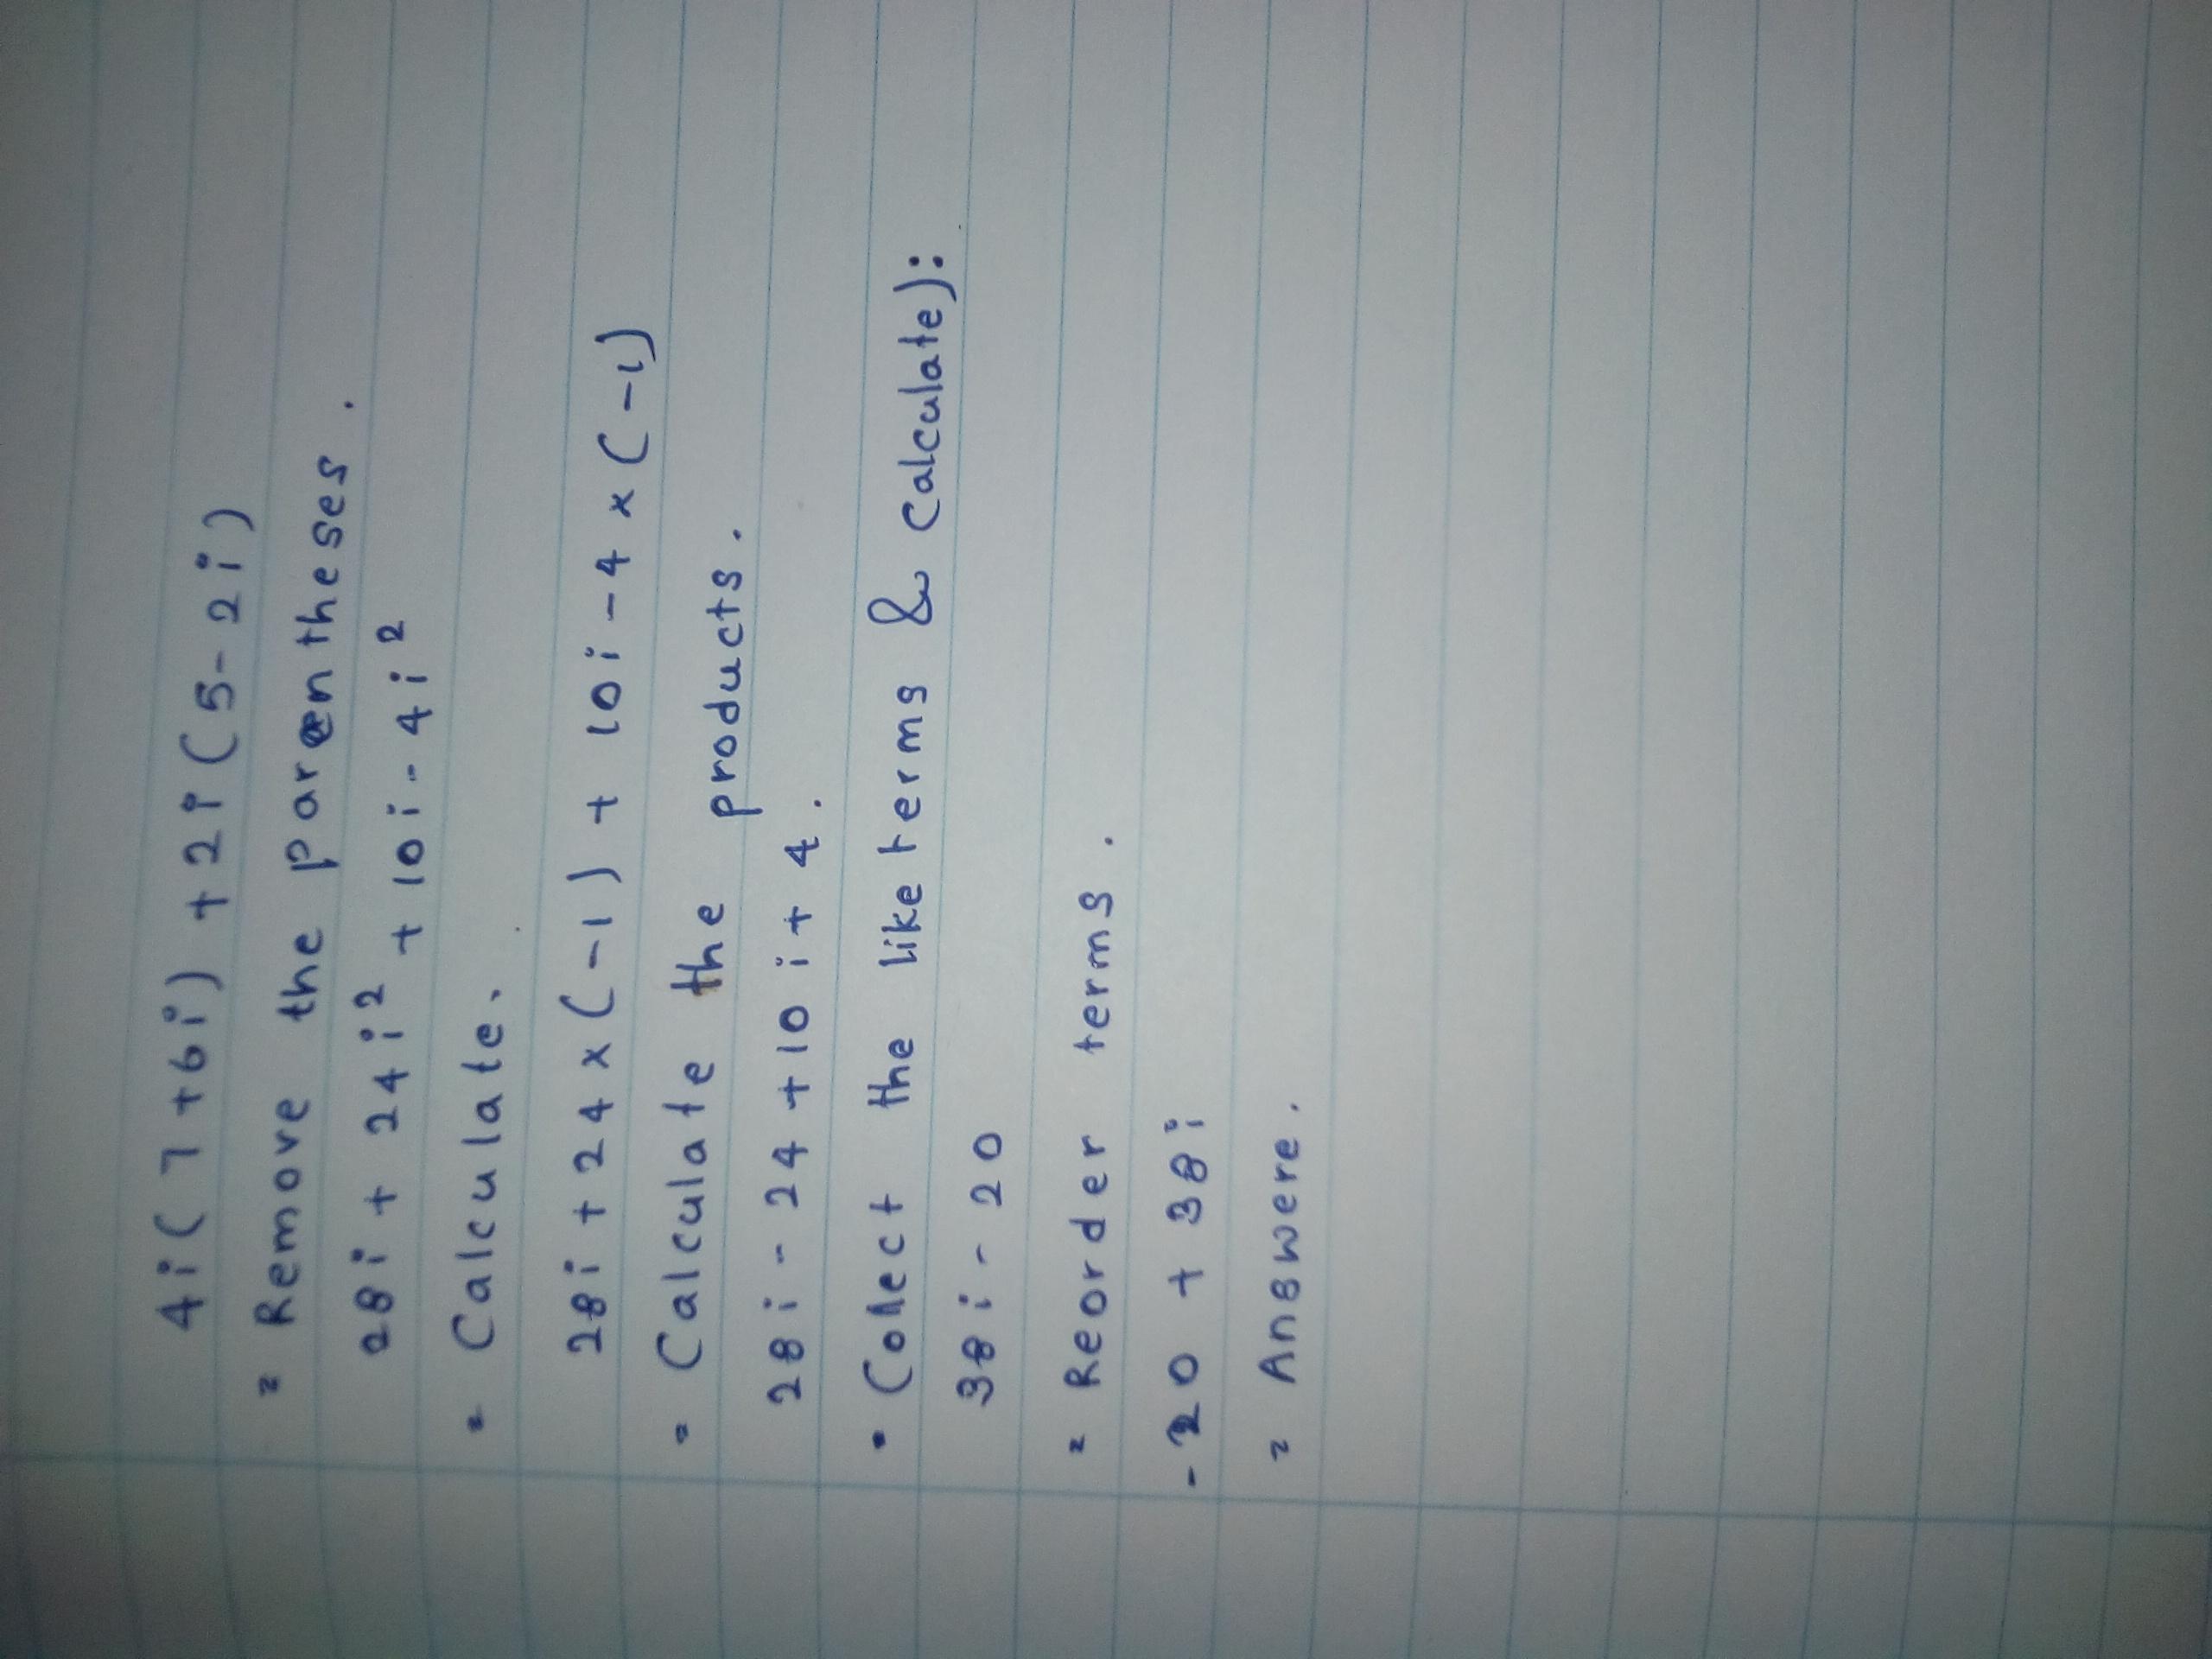 4i(7+6i)+2i(5-2i)
= Remove the parentheses.
28i + 24i² + 10i - 4i²
= Calculate.
28i + 24 x (-1) + 10i - 4 x (-1)
= Calculate the products.
28i - 24 + 10i + 4.
• Collect the like terms & calculate):
38i - 20
= Reorder terms.
-20 + 38i
= Answere.